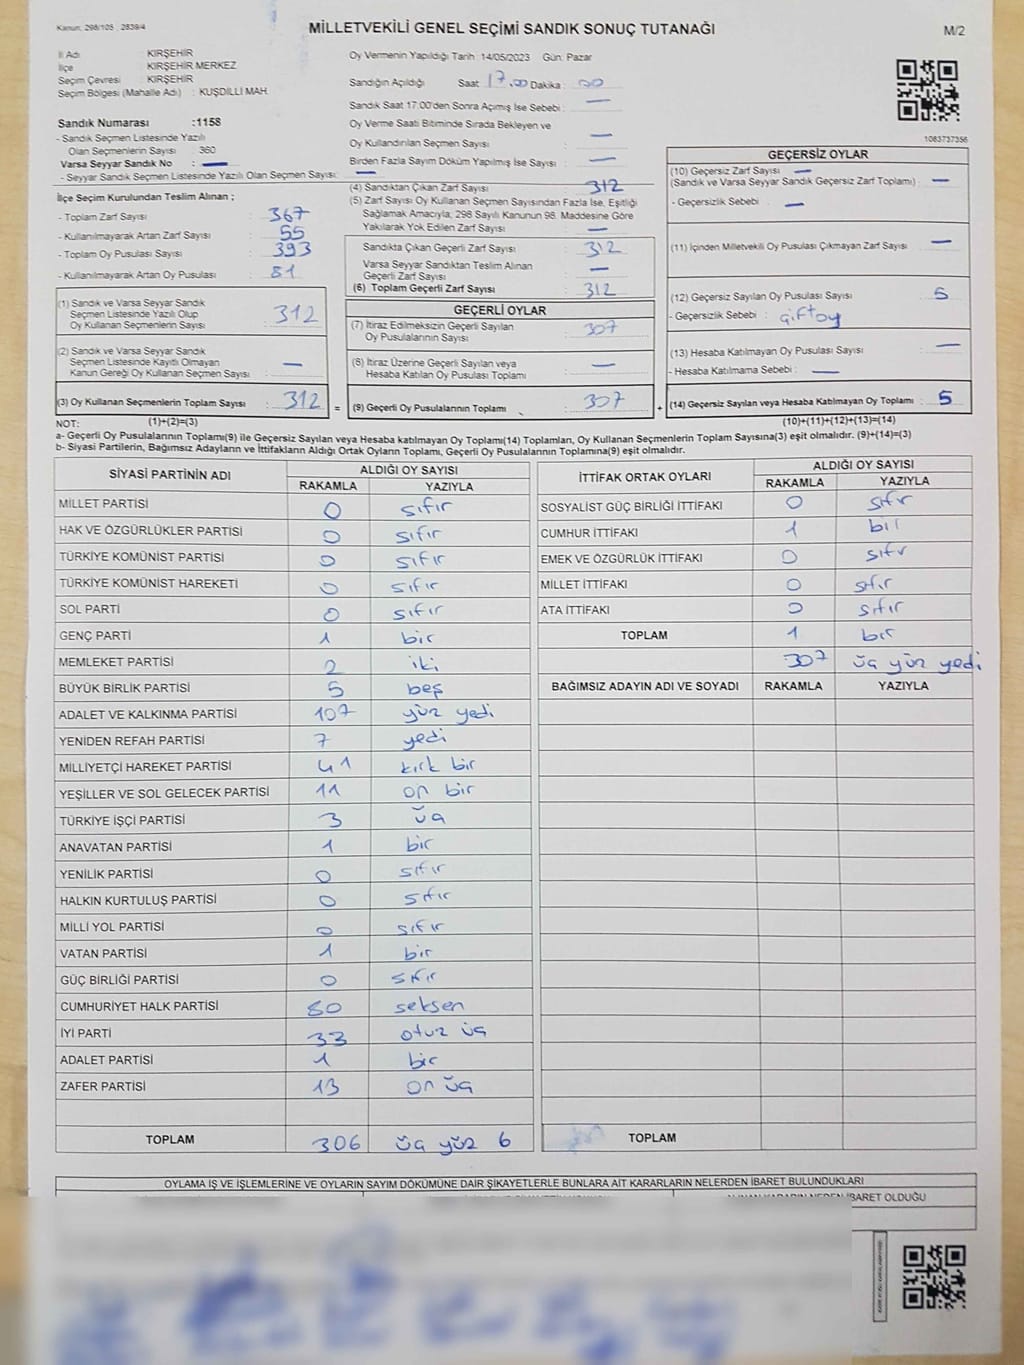 Kanun: 298/105 , 2839/4
MİLLETVEKİLİ GENEL SEÇİMİ SANDIK SONUÇ TUTANAĞI
M/2
İl Adı : KIRŞEHİR
İlçe : KIRŞEHİR MERKEZ
Seçim Çevresi : KIRŞEHİR
Seçim Bölgesi (Mahalle Adı) : KUŞDİLLİ MAH.
Oy Vermenin Yapıldığı Tarih : 14/05/2023 Gün: Pazar
Sandığın Açıldığı Saat 17.00 Dakika : 00
Sandık Saat 17:00'den Sonra Açımış İse Sebebi : —
Sandık Numarası :1158
- Sandık Seçmen Listesinde Yazılı
Olan Seçmenlerin Sayısı 360
Varsa Seyyar Sandık No : —
- Seyyar Sandık Seçmen Listesinde Yazılı Olan Seçmen Sayısı: —
Oy Verme Saati Bitiminde Sırada Bekleyen ve
Oy Kullandırılan Seçmen Sayısı : —
Birden Fazla Sayım Döküm Yapılmış İse Sayısı : —
1083737356
İlçe Seçim Kurulundan Teslim Alınan ;
- Toplam Zarf Sayısı : 367
- Kullanılmayarak Artan Zarf Sayısı : 55
- Toplam Oy Pusulası Sayısı : 393
- Kullanılmayarak Artan Oy Pusulası : 81
(1) Sandık ve Varsa Seyyar Sandık
Seçmen Listesinde Yazılı Olup
Oy Kullanan Seçmenlerin Sayısı : 312
(2) Sandık ve Varsa Seyyar Sandık
Seçmen Listesinde Kayıtlı Olmayan
Kanun Gereği Oy Kullanan Seçmen Sayısı : —
(3) Oy Kullanan Seçmenlerin Toplam Sayısı : 312 =
(4) Sandıktan Çıkan Zarf Sayısı : 312
(5) Zarf Sayısı Oy Kullanan Seçmen Sayısından Fazla İse, Eşitliği
Sağlamak Amacıyla; 298 Sayılı Kanunun 98. Maddesine Göre
Yakılarak Yok Edilen Zarf Sayısı : —
Sandıkta Çıkan Geçerli Zarf Sayısı : 312
Varsa Seyyar Sandıktan Teslim Alınan
Geçerli Zarf Sayısı : —
(6) Toplam Geçerli Zarf Sayısı : 312
GEÇERLİ OYLAR
(7) İtiraz Edilmeksizin Geçerli Sayılan
Oy Pusulalarının Sayısı : 307
(8) İtiraz Üzerine Geçerli Sayılan veya
Hesaba Katılan Oy Pusulası Toplamı : —
(9) Geçerli Oy Pusulalarının Toplamı : 307 +
GEÇERSİZ OYLAR
(10) Geçersiz Zarf Sayısı —
(Sandık ve Varsa Seyyar Sandık Geçersiz Zarf Toplamı) : —
- Geçersizlik Sebebi : —
(11) İçinden Milletvekili Oy Pusulası Çıkmayan Zarf Sayısı : —
(12) Geçersiz Sayılan Oy Pusulası Sayısı : 5
- Geçersizlik Sebebi : çiftoy
(13) Hesaba Katılmayan Oy Pusulası Sayısı : —
- Hesaba Katılmama Sebebi : —
(14) Geçersiz Sayılan veya Hesaba Katılmayan Oy Toplamı : 5
NOT: (1)+(2)=(3) (10)+(11)+(12)+(13)=(14)
a- Geçerli Oy Pusulalarının Toplamı(9) ile Geçersiz Sayılan veya Hesaba katılmayan Oy Toplamı(14) Toplamları, Oy Kullanan Seçmenlerin Toplam Sayısına(3) eşit olmalıdır. (9)+(14)=(3)
b- Siyasi Partilerin, Bağımsız Adayların ve İttifakların Aldığı Ortak Oyların Toplamı, Geçerli Oy Pusulalarının Toplamına(9) eşit olmalıdır.
SİYASİ PARTİNİN ADI ALDIĞI OY SAYISI
RAKAMLA YAZIYLA
MİLLET PARTİSİ 0 sıfır
HAK VE ÖZGÜRLÜKLER PARTİSİ 0 sıfır
TÜRKİYE KOMÜNİST PARTİSİ 0 sıfır
TÜRKİYE KOMÜNİST HAREKETİ 0 sıfır
SOL PARTİ 0 sıfır
GENÇ PARTİ 1 bir
MEMLEKET PARTİSİ 2 iki
BÜYÜK BİRLİK PARTİSİ 5 beş
ADALET VE KALKINMA PARTİSİ 107 yüz yedi
YENİDEN REFAH PARTİSİ 7 yedi
MİLLİYETÇİ HAREKET PARTİSİ 41 kırk bir
YEŞİLLER VE SOL GELECEK PARTİSİ 11 on bir
TÜRKİYE İŞÇİ PARTİSİ 3 üç
ANAVATAN PARTİSİ 1 bir
YENİLİK PARTİSİ 0 sıfır
HALKIN KURTULUŞ PARTİSİ 0 sıfır
MİLLİ YOL PARTİSİ 0 sıfır
VATAN PARTİSİ 1 bir
GÜÇ BİRLİĞİ PARTİSİ 0 sıfır
CUMHURİYET HALK PARTİSİ 80 seksen
İYİ PARTİ 33 otuz üç
ADALET PARTİSİ 1 bir
ZAFER PARTİSİ 13 on üç
TOPLAM 306 üç yüz 6
İTTİFAK ORTAK OYLARI ALDIĞI OY SAYISI
RAKAMLA YAZIYLA
SOSYALİST GÜÇ BİRLİĞİ İTTİFAKI 0 sıfır
CUMHUR İTTİFAKI 1 bir
EMEK VE ÖZGÜRLÜK İTTİFAKI 0 sıfır
MİLLET İTTİFAKI 0 sıfır
ATA İTTİFAKI 0 sıfır
TOPLAM 1 bir
307 üç yüz yedi
BAĞIMSIZ ADAYIN ADI VE SOYADI RAKAMLA YAZIYLA
TOPLAM
OYLAMA İŞ VE İŞLEMLERİNE VE OYLARIN SAYIM DÖKÜMÜNE DAİR ŞİKAYETLERLE BUNLARA AİT KARARLARIN NELERDEN İBARET BULUNDUKLARI
İBARET OLDUĞU